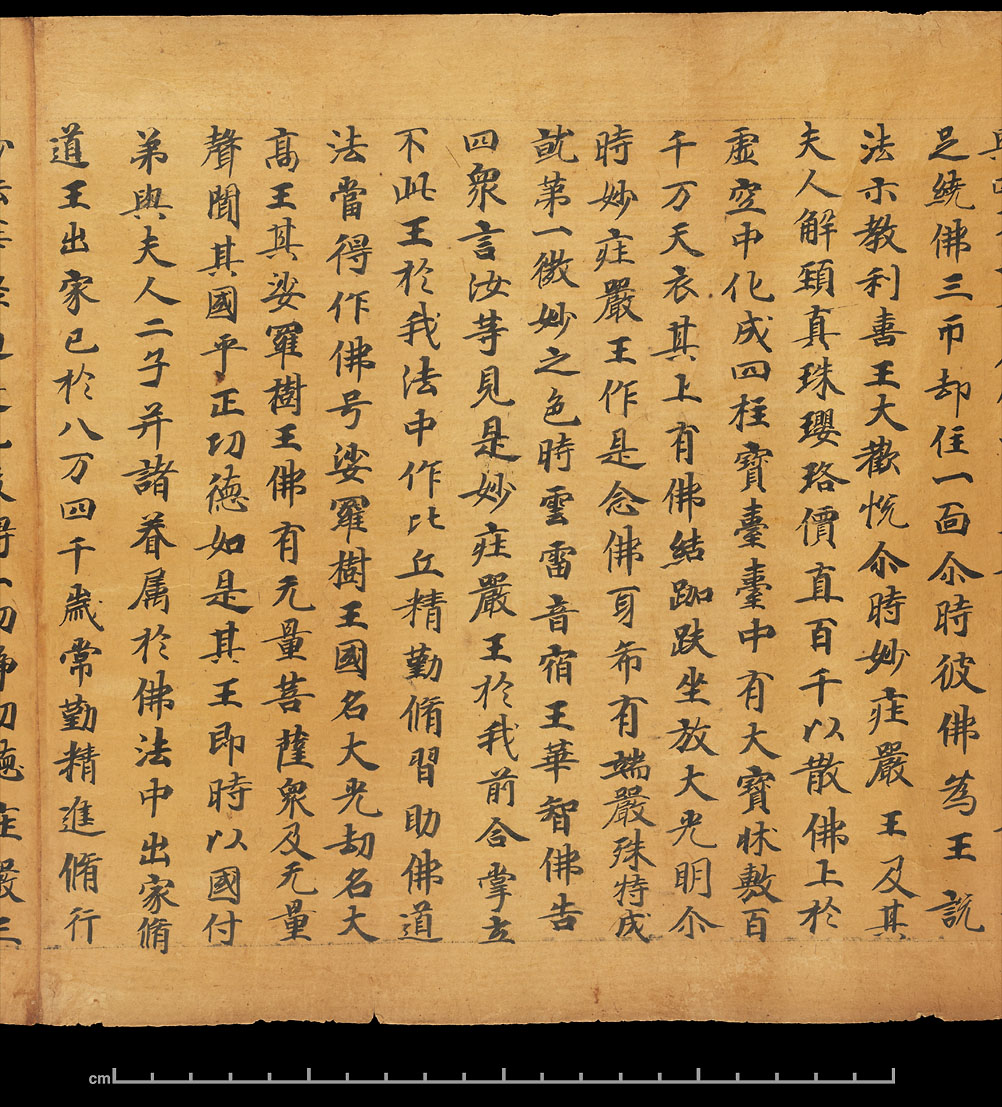 足繞佛三帀却住一面尒時彼佛為王說
法示教利憙王大歡悅尒時妙庄嚴王及其
夫人解頚真珠瓔珞價直百千以散佛上於
虛空中化成四柱寶臺臺中有大寶牀敷百
千万天衣其上有佛結跏趺坐放大光明尒
時妙庄嚴王作是念佛身希有端嚴殊特成
就第一微妙之色時雲雷音宿王華智佛告
四衆言汝等見是妙庄嚴王於我前合掌立
不此王於我法中作比丘精勤脩習助佛道
法當得作佛号娑羅樹王國名大光劫名大
高王其娑羅樹王佛有无量菩薩衆及无量
聲聞其國平正功德如是其王即時以國付
弟與夫人二子并諸眷属於佛法中出家脩
道王出家已於八万四千歲常勤精進脩行
cm